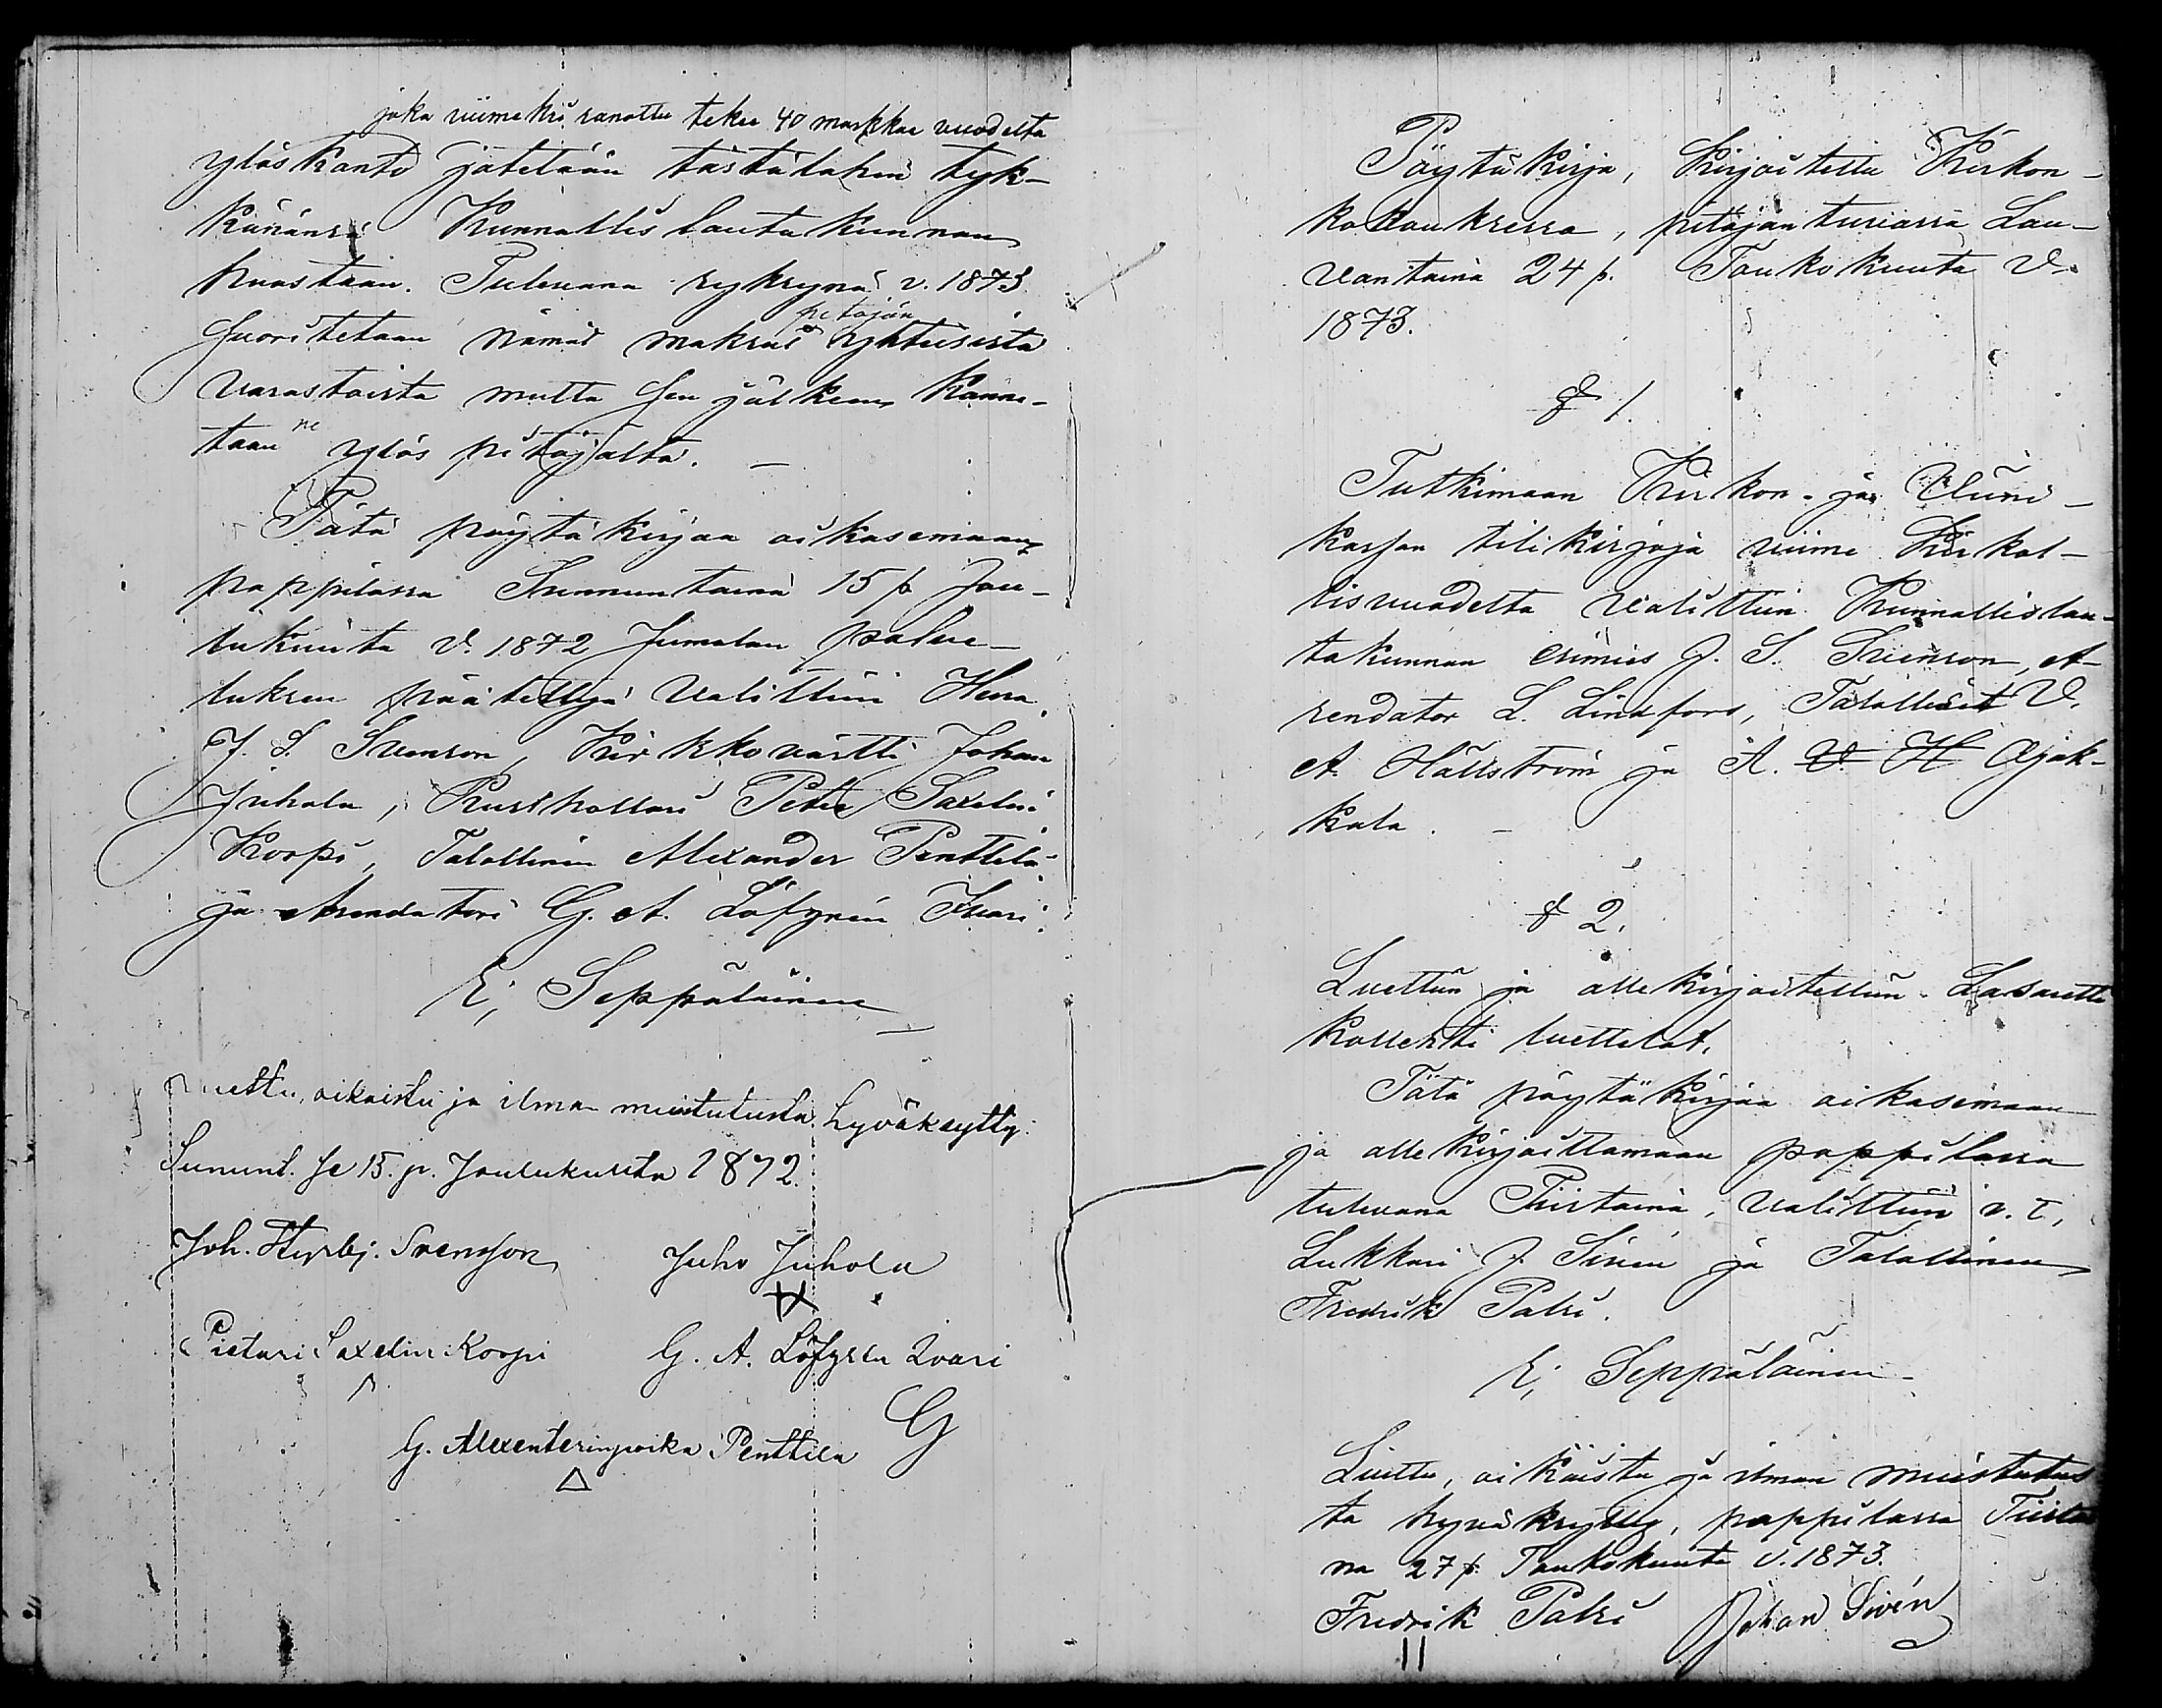 joka viimeksi sanottu tekee 40 markkaa vuodelta
ylöskanto jätetään tästälähin tyk-
känänsä Kunnallislautakunnan
huostaan. Tulevana syksynä v. 1873
suoritetaan nämät maksut pitäjän yhteisistä
varastoista mutta sen jälkeen kanne-
taan ne ylös pitäjältä. —
Tätä pöytäkirjaa oikasemaan
pappilassa Sunnuntaina 15 p Jou-
lukuuta v. 1872 Jumalan palve-
luksen päätettyä valittiin Herra
J. S. Svenson, Kirkkovärtti Johan
Juhala, Rusthollari Peter Saxelin
Korpi, Talollinen Alexander Penttilä
ja Arendatori G. A. Löfgrén Iivari.
E; Seppäläinen
Luettu, oikaistu ja ilman muistutusta hyväksytty:
Sunnunt. se 15. p. Joulukuuta 1872.
Joh. Styrbj. Svensson Juho Juhola
Pietari Saxelin Korpi G. A. Löfgren Ivari
G. Alexenterinpoika Penttila G
Pöytäkirja, kirjoitettu Kirkon-
kokouksessa, pitäjäntuvassa Lau-
vantaina 24 p. Toukokuuta v.
1873.
§ 1.
Tutkimaan Kirkon- ja Viini-
kassan tilikirjoja viime Kirkol-
lisvuodelta valittiin Kunnallislau-
takunnan esimies J. S. Svenson, A-
rendator L. Lindfors, Talolliset V.
A. Hällström ja A. V. H Ojak-
kala. —
§ 2.
Luettiin ja allekirjoitettiin Lasaretti
kollekti luettelot.
Tätä pöytäkirjaa oikasemaan
ja allekirjoittamaan pappilassa
tulevana Tiistaina, valittiin v. t.
Lukkari J. Sivén ja Talollinen
Fredrik Palsi.
E; Seppäläinen
Luettu, oikaistu ja ilman muistutus
ta hyväksytty, pappilassa Tiistai
na 27 p. Toukokuuta v. 1873.
Fredrik Palsi Johan Sivén